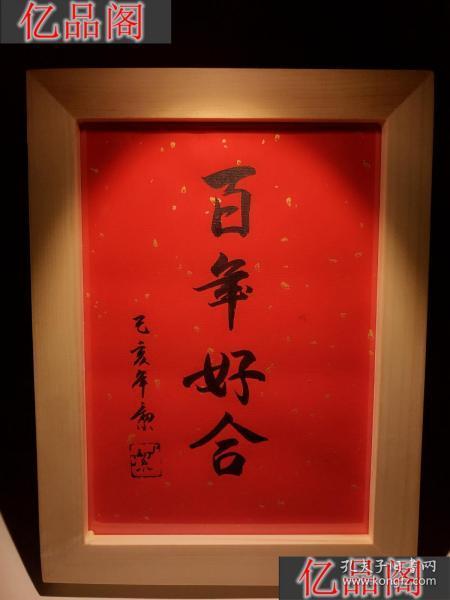 亿品阁
亿品阁
百年好合
己亥年
孔夫子旧书网
www.kongfz.com
亿品阁